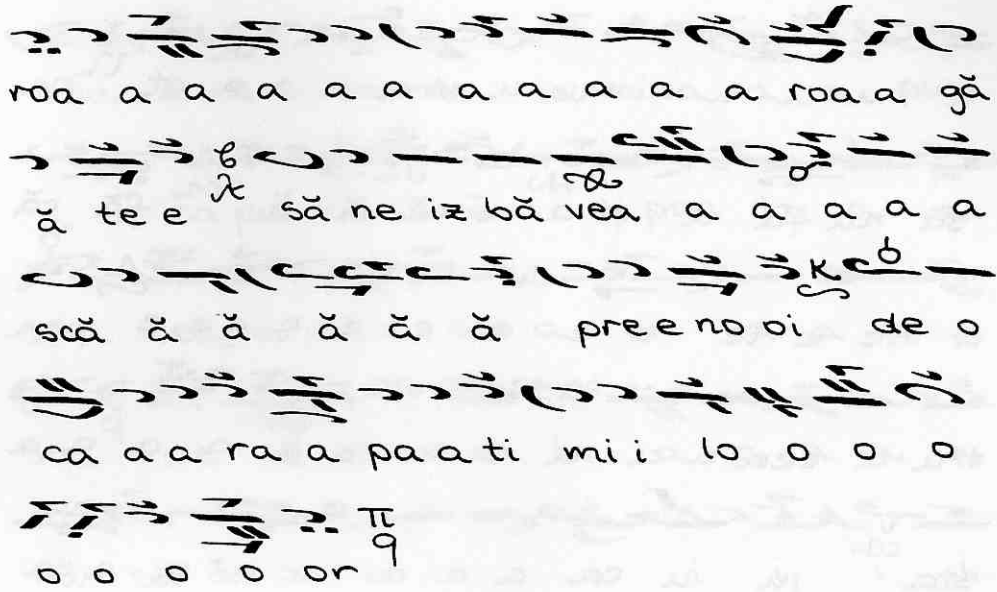 roa a a a a a a a a a a roa a gă
ă te e să ne iz bă vea a a a a a
scă ă ă ă ă ă pre e no oi de o
că a a ra a pa a ti mi i lo o o o
o o o o or